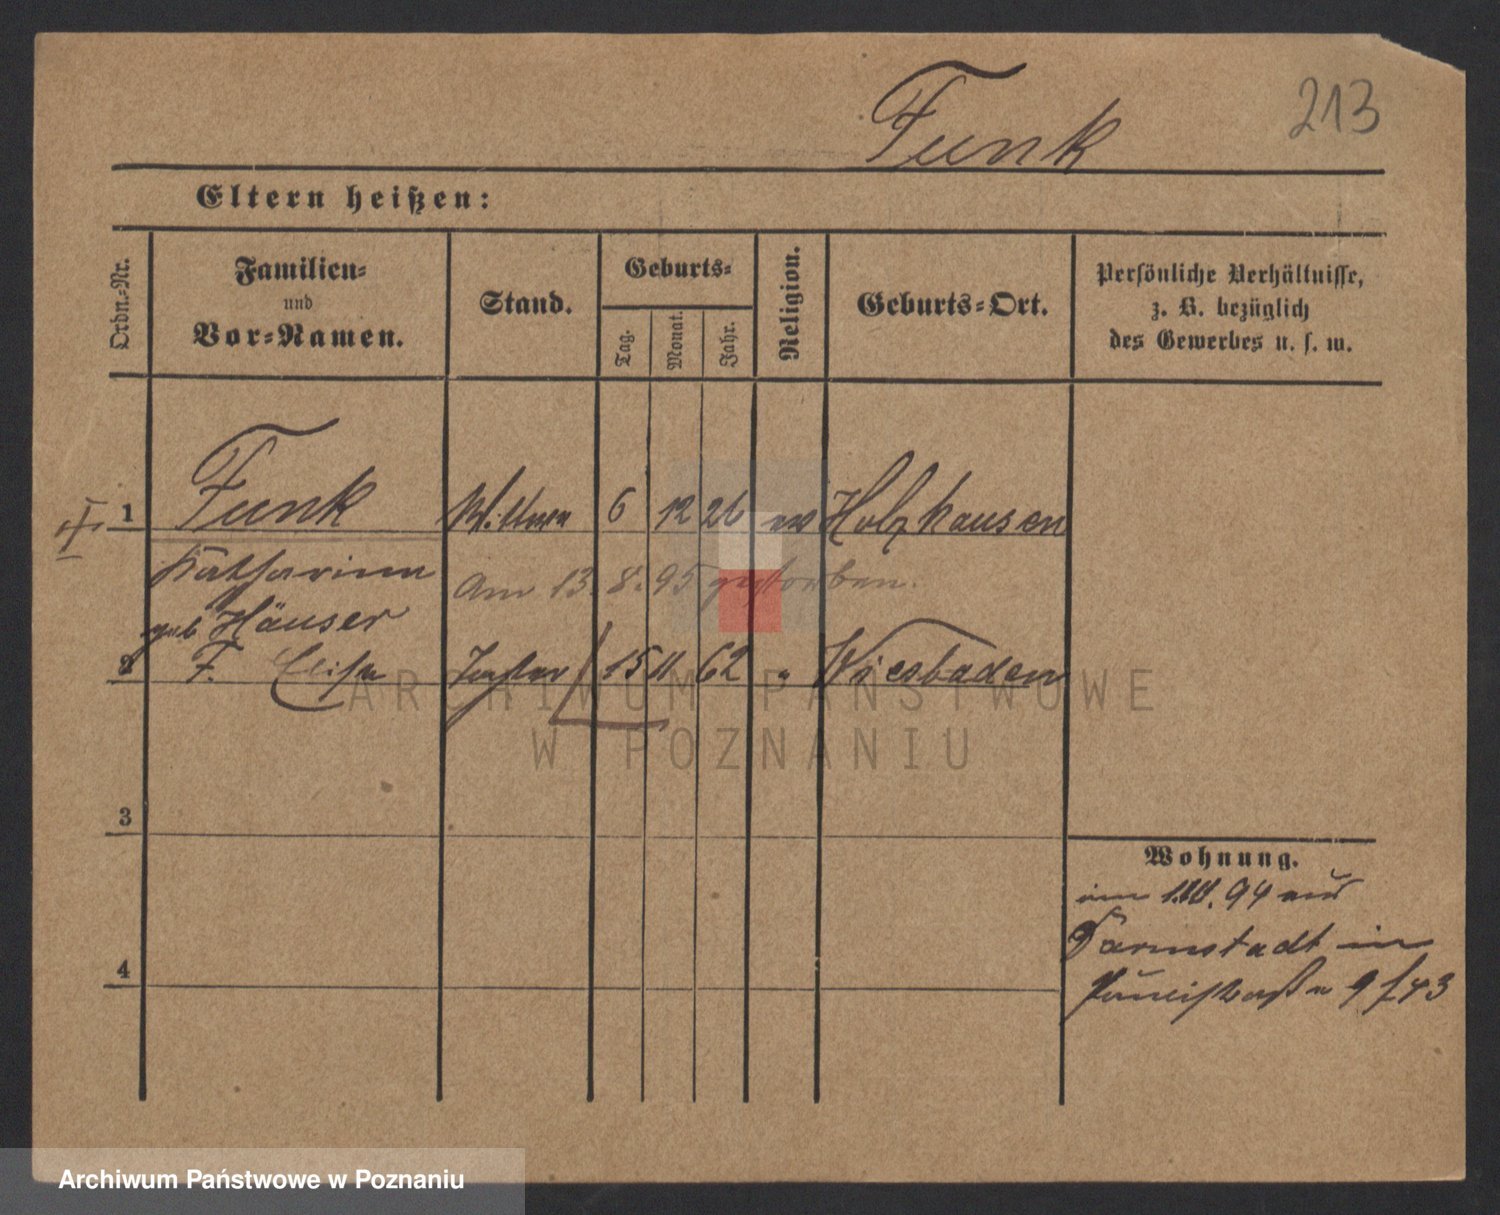 Funk
213
Eltern heißen:
Ordn.-Nr.
Familien-
und
Vor-Namen.
Stand.
Geburts-
Tag.
Monat.
Jahr.
Religion.
Geburts-Ort.
Persönliche Verhältnisse,
z. B. bezüglich
des Gewerbes u. s. w.
1 Funk Wittwe 6 12 26 Holzhausen
Katharina
am 13. 8. 95 gestorben.
geb Häuser
2 F. Elise Tochter 15 11 62 " Wiesbaden
ARCHIWUM PAŃSTWOWE
W POZNANIU
3
Wohnung.
94 aus
Darmstadt in
4
9
Archiwum Państwowe w Poznaniu